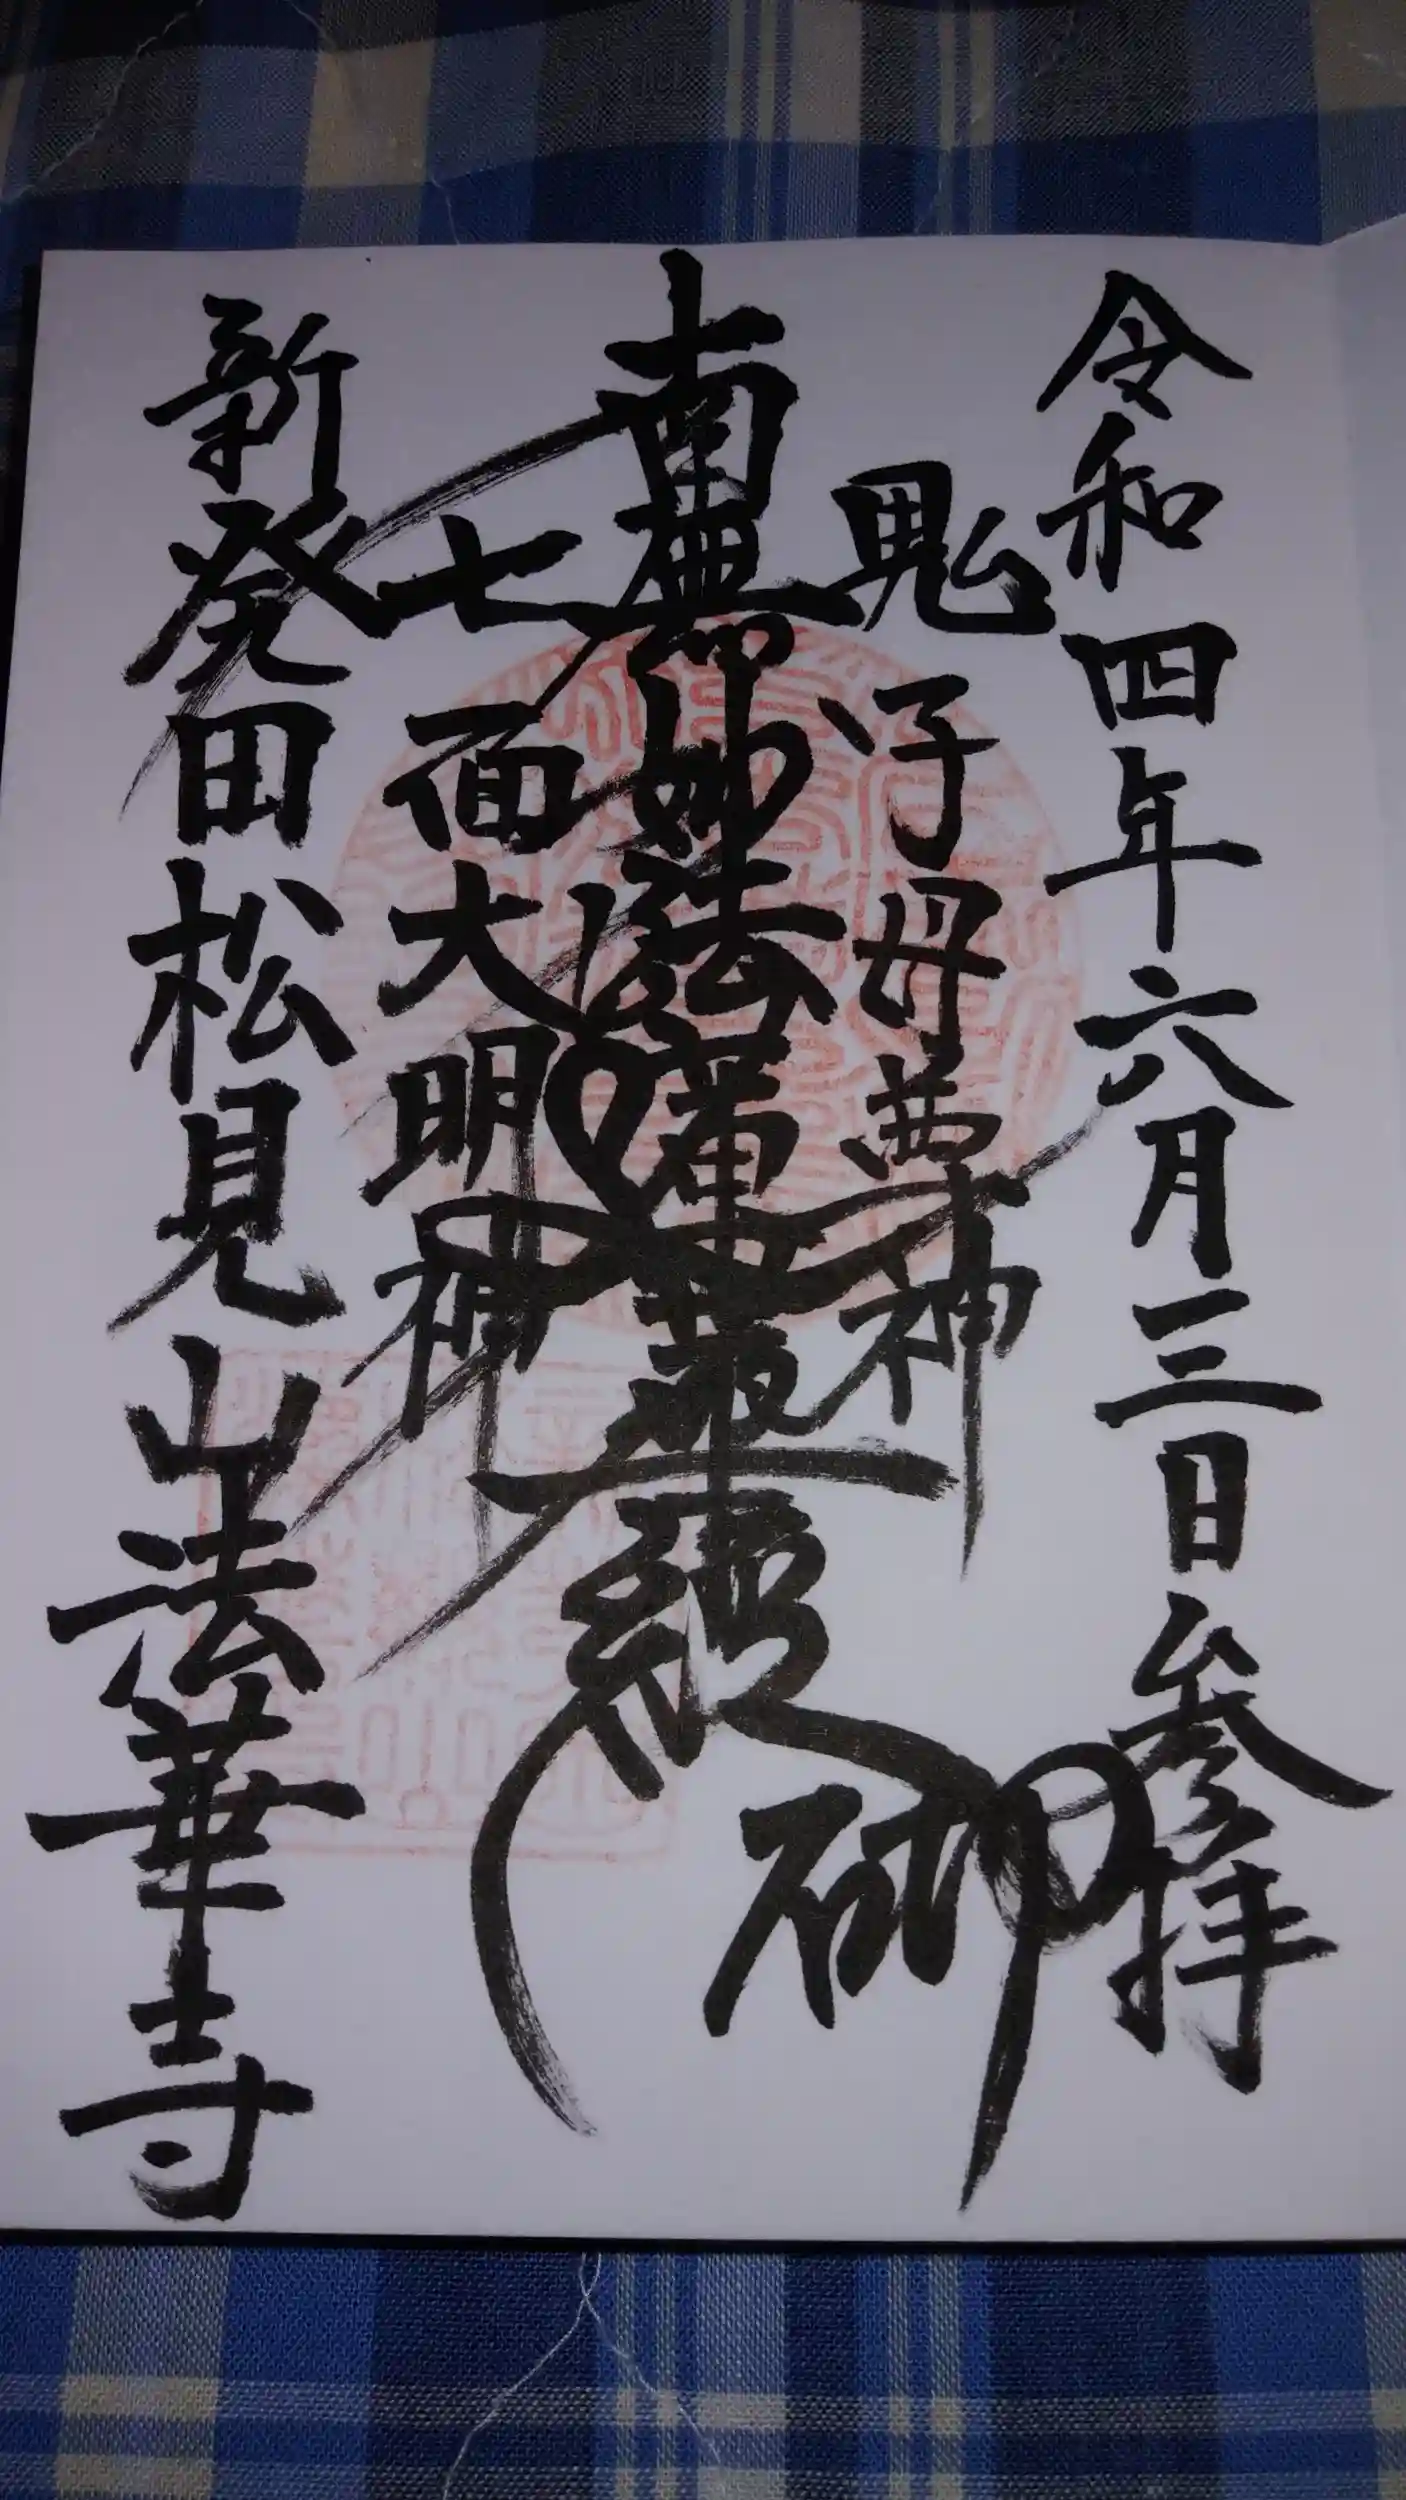 令和四年六月三日参拝
鬼子母尊神
南無妙法蓮華経
七面大明神
新発田松見山法華寺